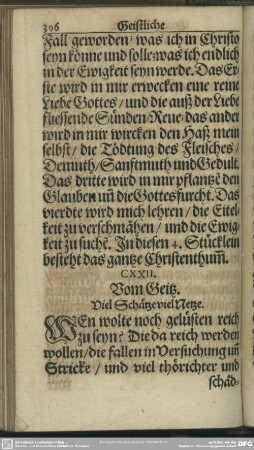 306 Geistliche
Fall geworden: was ich in Christo
seyn könne und solle: was ich endlich
in der Ewigkeit seyn werde. Das Er-
ste wird in mir erwecken eine reine
Liebe Gottes / und die auß der Liebe
fliessende Sünden-Reue: das ander
wird in mir wircken den Haß mein
selbst / die Tödtung des Fleisches /
Demuth / Sanftmuth und Gedult.
Das dritte wird in mir pflantzē den
Glauben uñ die Gottesfurcht. Das
vierdte wird mich lehren / die Eitel-
keit zu verschmähen / und die Ewig-
keit zu suchē. In diesen 4. Stücklein
besteht das gantze Christenthum̃.
CXXII.
Vom Geitz.
Viel Schätze viel Netze.
WEn wolte noch gelüsten reich
zu seyn? Die da reich werden
wollen / die fallen in Versuchung uñ
Stricke / und viel thörichter und
schäd-